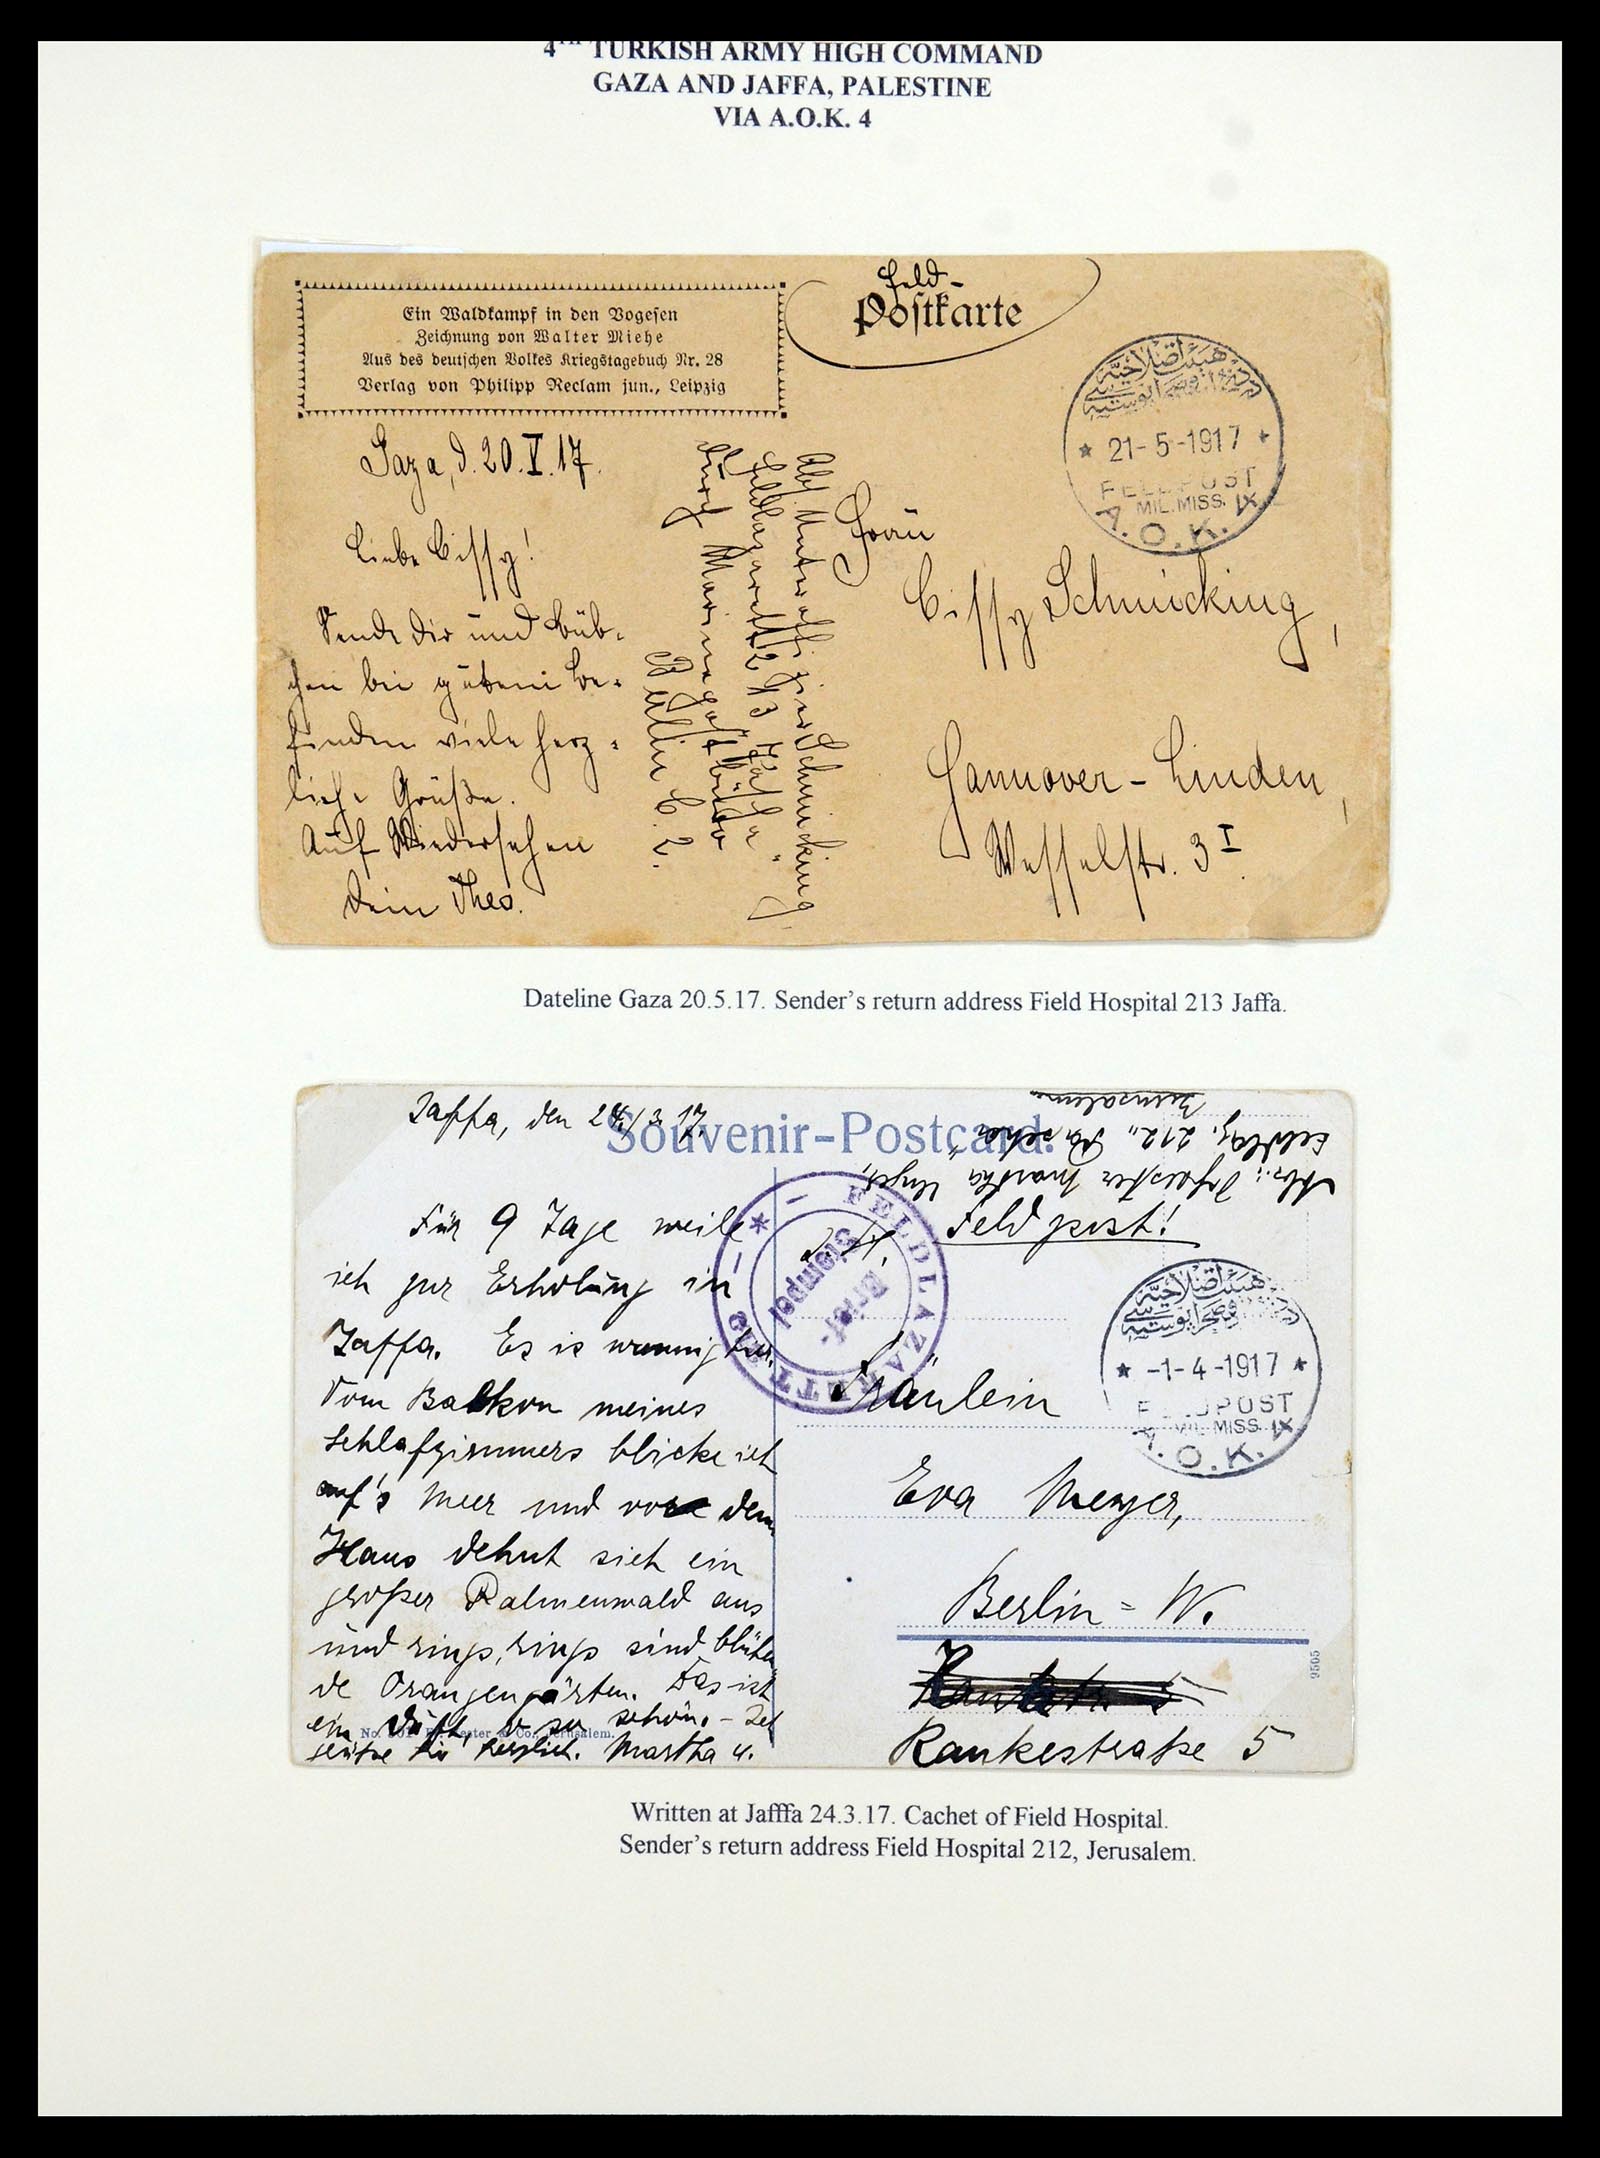 4TH TURKISH ARMY HIGH COMMAND
GAZA AND JAFFA, PALESTINE
VIA A.O.K. 4
Ein Waldkampf in den Vogesen
Zeichnung von Walter Miehe
Aus des deutschen Volkes Kriegstagebuch Nr. 28
Verlag von Philipp Reclam jun., Leipzig
Feld-
Postkarte
21-5-1917
FELDPOST
MIL. MISS.
A.O.K. IX
Gaza, d. 20.V.17.
Liebe Cissy!
Sende dir und Büb-
chen bei gutem Be-
finden viele herz-
liche Grüße.
Auf Wiedersehen
Dein Theo.
Abs. Unteroffizier Schmücking
Feldlazarett 213 Jaffa.
durch Marine Postbüro
Berlin C. 2.
Frau
Cissy Schmücking,
Hannover-Linden,
Wesselstr. 3 I.
Dateline Gaza 20.5.17. Sender's return address Field Hospital 213 Jaffa.
Jaffa, den 24/3 17.
Souvenir-Postcard.
Abs.: Schwester Martha
Feldlaz. 212 "Pascha"
Jerusalem.
Feldpost!
FELDLAZARETT
Brief-
Stempel
-1-4-1917
FELDPOST
MIL. MISS.
A.O.K. IX
Für 9 Tage weile
ich zur Erholung in
Jaffa. Es is wonnig hier.
Vom Balkon meines
Schlafzimmers blicke ich
auf's Meer und vor dem
Haus dehnt sich ein
großer Palmenwald aus
und rings, rings sind blühen-
de Orangengärten. Das ist
ein Duft, o so schön. -
herzlich. Martha U.
Jerusalem.
Fräulein
Eva Meyer,
Berlin = W.
Rankestraße 5
9505
Written at Jafffa 24.3.17. Cachet of Field Hospital.
Sender's return address Field Hospital 212, Jerusalem.